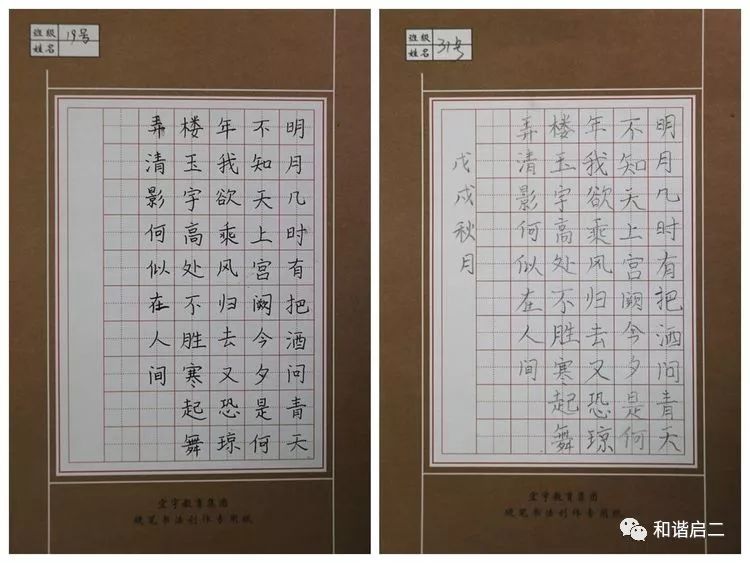 班级 19号
姓名
明月几时有把酒问青天
不知天上宫阙今夕是何
年我欲乘风归去又恐琼
楼玉宇高处不胜寒起舞
弄清影何似在人间
宇教育集团
硬笔书法创作专用纸
班级
姓名 31号
明月几时有把酒问青天
不知天上宫阙今夕是何
年我欲乘风归去又恐琼
楼玉宇高处不胜寒起舞
弄清影何似在人间
戊戌秋月
宇教育集团
硬笔书法创作专用纸
和谐启二